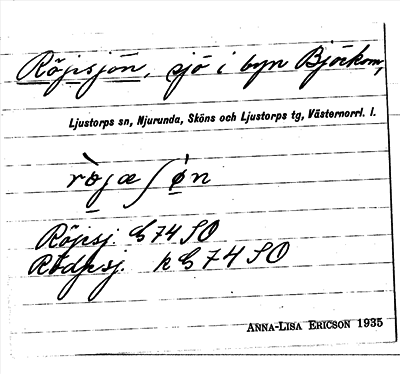 Röjesjön, sjö i byn Björkom,
Ljustorps sn, Njurunda, Sköns och Ljustorps tg, Västernorrl. l.
røjæʃøn
Röjesj. G 74 SO
Rödjesj. k G 74 SO
ANNA-LISA ERICSON 1935